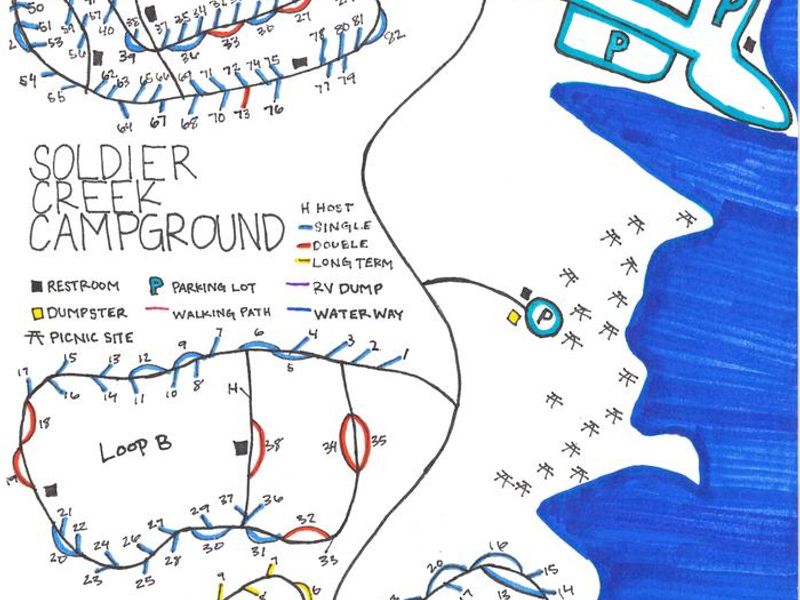 50
51
2
53
54
55
59
47
56
40
38
37
39
35
34
33
36
30
27
78
80
81
82
77
79
62
63
65
66
69
71
72
74
75
64
67
68
70
73
76
SOLDIER
CREEK
CAMPGROUND
H HOST
SINGLE
DOUBLE
LONG TERM
RESTROOM P PARKING LOT RV DUMP
DUMPSTER WALKING PATH WATER WAY
PICNIC SITE
P
P
P
17 15 13 12 9 7 6 4 3 2 1
16 14 11 10 8 5
18
H
LOOP B
38 34 35
19
21
22
20
23
24
25
26
27
28
29
30
37
36
31
32
33
9
7
8
6
20
16
15
17
13
14